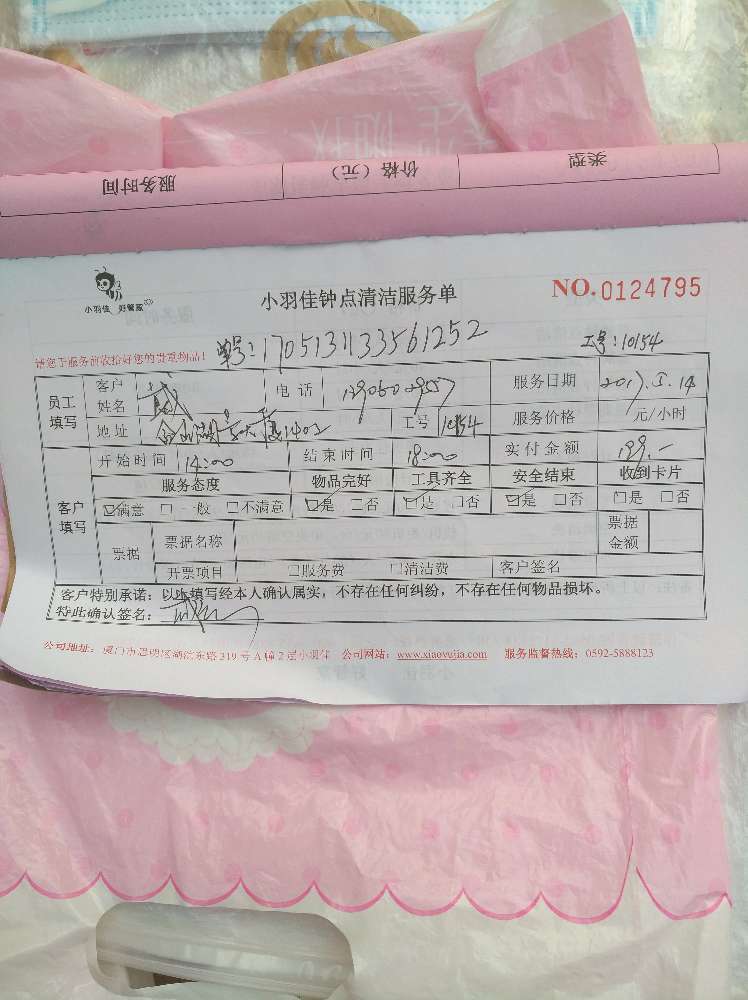 服务时间 价格（元） 类型
小羽佳 好管家
小羽佳钟点清洁服务单
NO.0124795
请您于服务前收拾好您的贵重物品！
单号:1705131133561252
工号:10154
员工填写 客户姓名 电话 服务日期 2017.5.14
地址 1402 工号 10154 服务价格 元/小时
客户填写 开始时间 14:00 结束时间 18:00 实付金额 199.-
服务态度 物品完好 工具齐全 安全结束 收到卡片
☑满意 □一般 □不满意 ☑是 □否 ☑是 □否 ☑是 □否 □是 □否
票据 票据名称 票据金额
开票项目 □服务费 □清洁费 客户签名
客户特别承诺：以上填写经本人确认属实，不存在任何纠纷，不存在任何物品损坏。
特此确认签名：
公司地址：厦门市思明区湖滨东路319号A幢2层小羽佳 公司网站：www.xiaoyujia.com 服务监督热线：0592-5888123